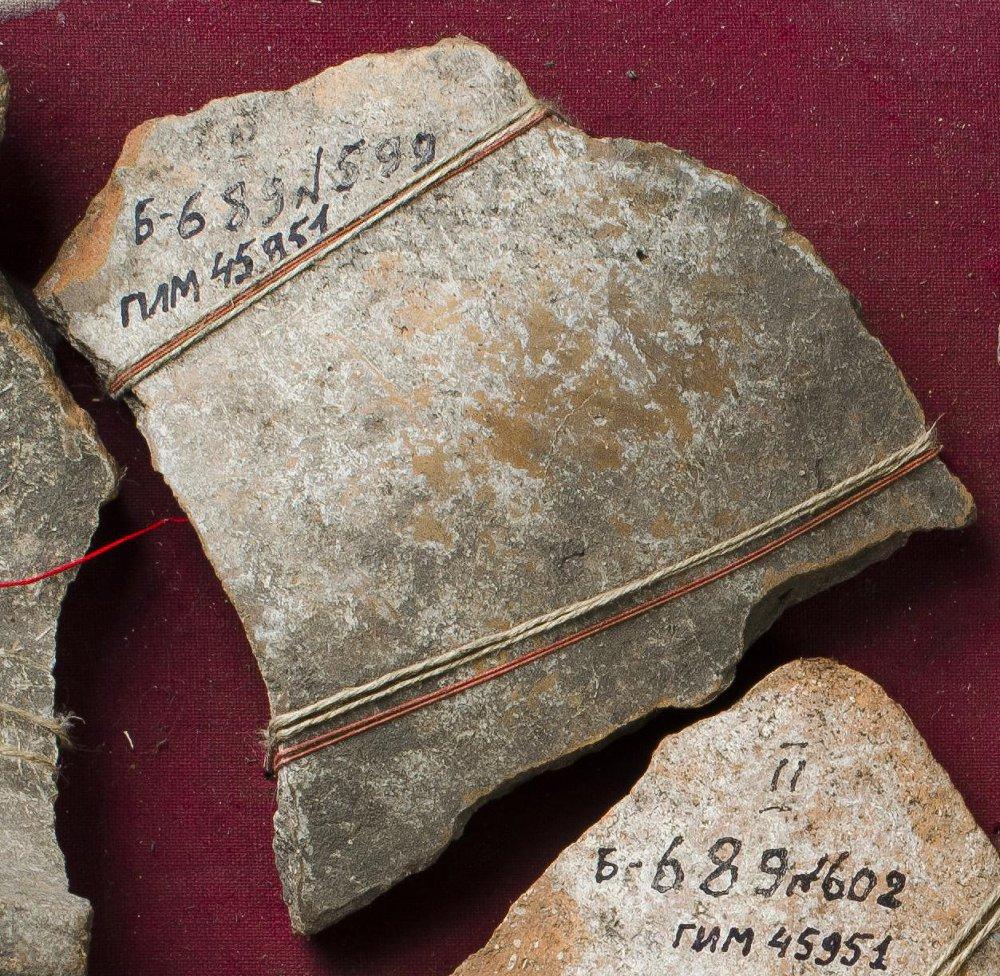 Б-689 №599
ГИМ 45951
II
Б-689 №602
ГИМ 45951